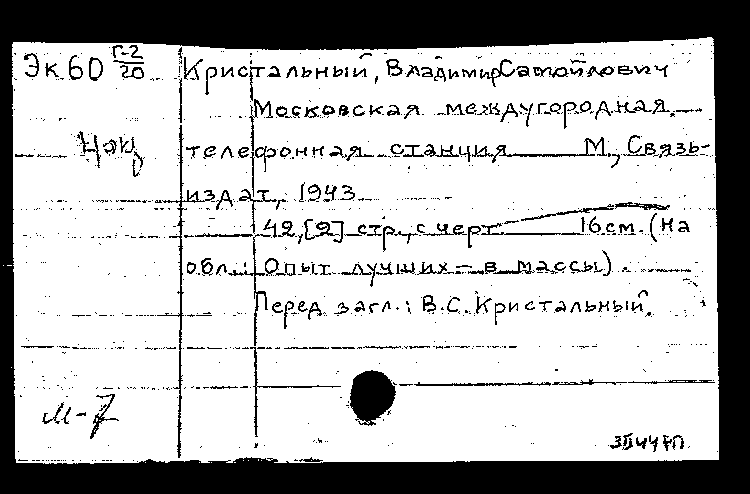 Эк 60 Г-2/20 Кристальный, Владимир Самойлович
Московская междугородная
телефонная станция М, Связь-
издат, 1943
42,[2] стр., с черт. 16см. (На
обл.: Опыт лучших – в массы).
Перед загл.: В.С. Кристальный.
м-7